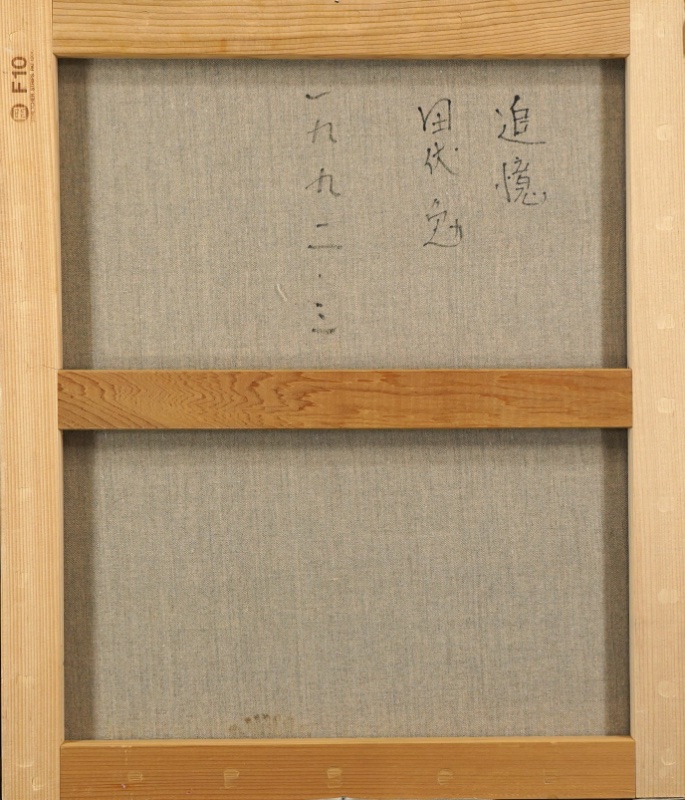 追憶
田伏勉
一九九二・三
F10